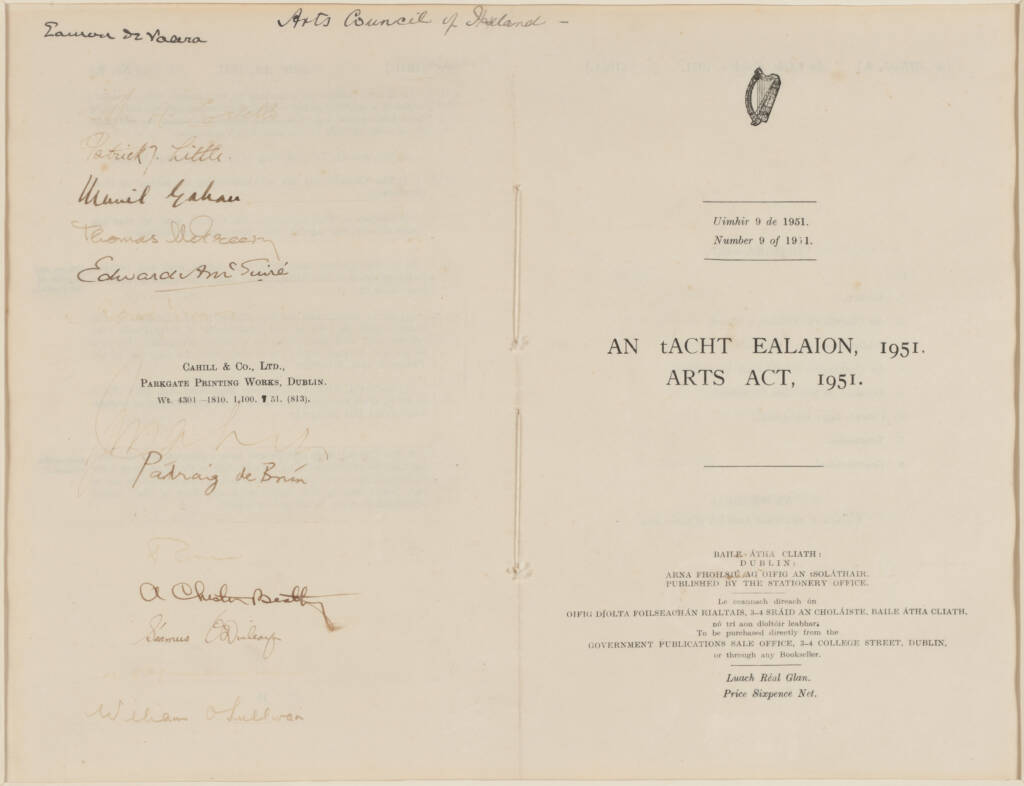 Arts Council of Ireland –
Eamon de Valera
Patrick J. Little.
Muriel Gahan
Thomas McGreevy
Edward A McGuire
CAHILL & CO., LTD.,
PARKGATE PRINTING WORKS, DUBLIN.
Wt. 4301—1810. 1,100. 7 51. (813).
Pádraig de Brún
A Chester Beatty
Séamus
William O'Sullivan
Uimhir 9 de 1951.
Number 9 of 1951.
AN tACHT EALAION, 1951.
ARTS ACT, 1951.
BAILE ÁTHA CLIATH:
DUBLIN:
ARNA FHOILSIÚ AG OIFIG AN tSOLÁTHAIR.
PUBLISHED BY THE STATIONERY OFFICE.
Le ceannach díreach ón
OIFIG DÍOLTA FOILSEACHÁN RIALTAIS, 3-4 SRÁID AN CHOLÁISTE, BAILE ÁTHA CLIATH,
nó trí aon díoltóir leabhar.
To be purchased directly from the
GOVERNMENT PUBLICATIONS SALE OFFICE, 3-4 COLLEGE STREET, DUBLIN,
or through any Bookseller.
Luach Réal Glan.
Price Sixpence Net.